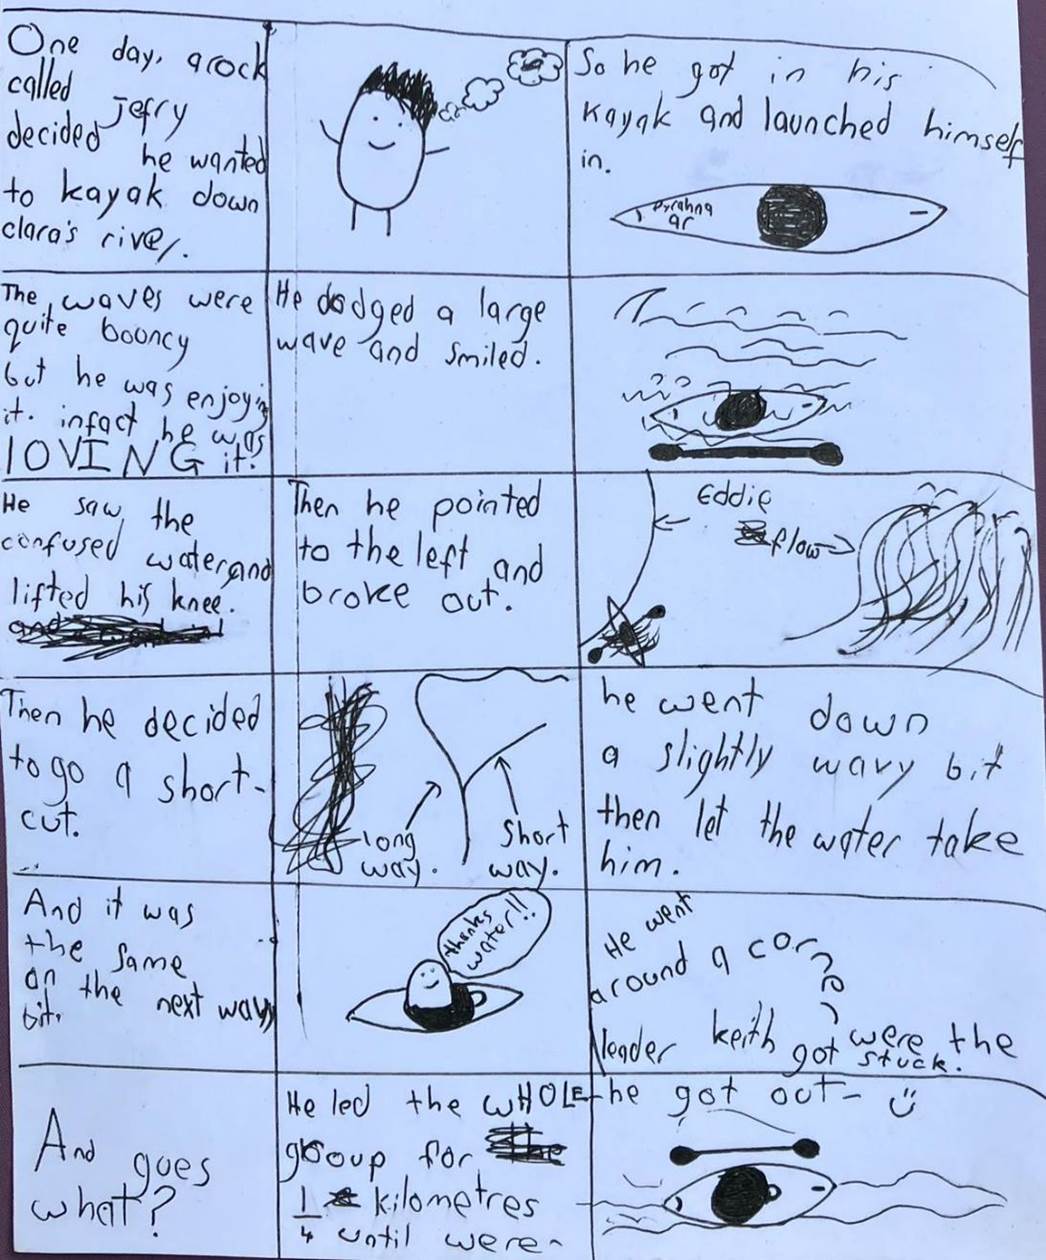 One day, a rock
called
Jefry
decided
he wanted
to kayak down
clara's river.
So he got in his
kayak and launched himself
in.
Pyrahna
ar
The waves were
quite booncy
but he was enjoying
it. infact he was
LOVING it!
He dodged a large
wave and smiled.
He saw the
confused water and
lifted his knee.
Then he pointed
to the left and
broke out.
Eddie
flow
Then he decided
to go a short-
cut.
long
way.
short
way.
he went down
a slightly wavy bit
then let the water take
him.
And it was
the same
on the next wavy
bit.
thanks
water!!
He went
around a corner
were the
leader keith got stuck.
And goes
what?
He led the WHOLE
group for
1/4 kilometres
until were-
he got out-